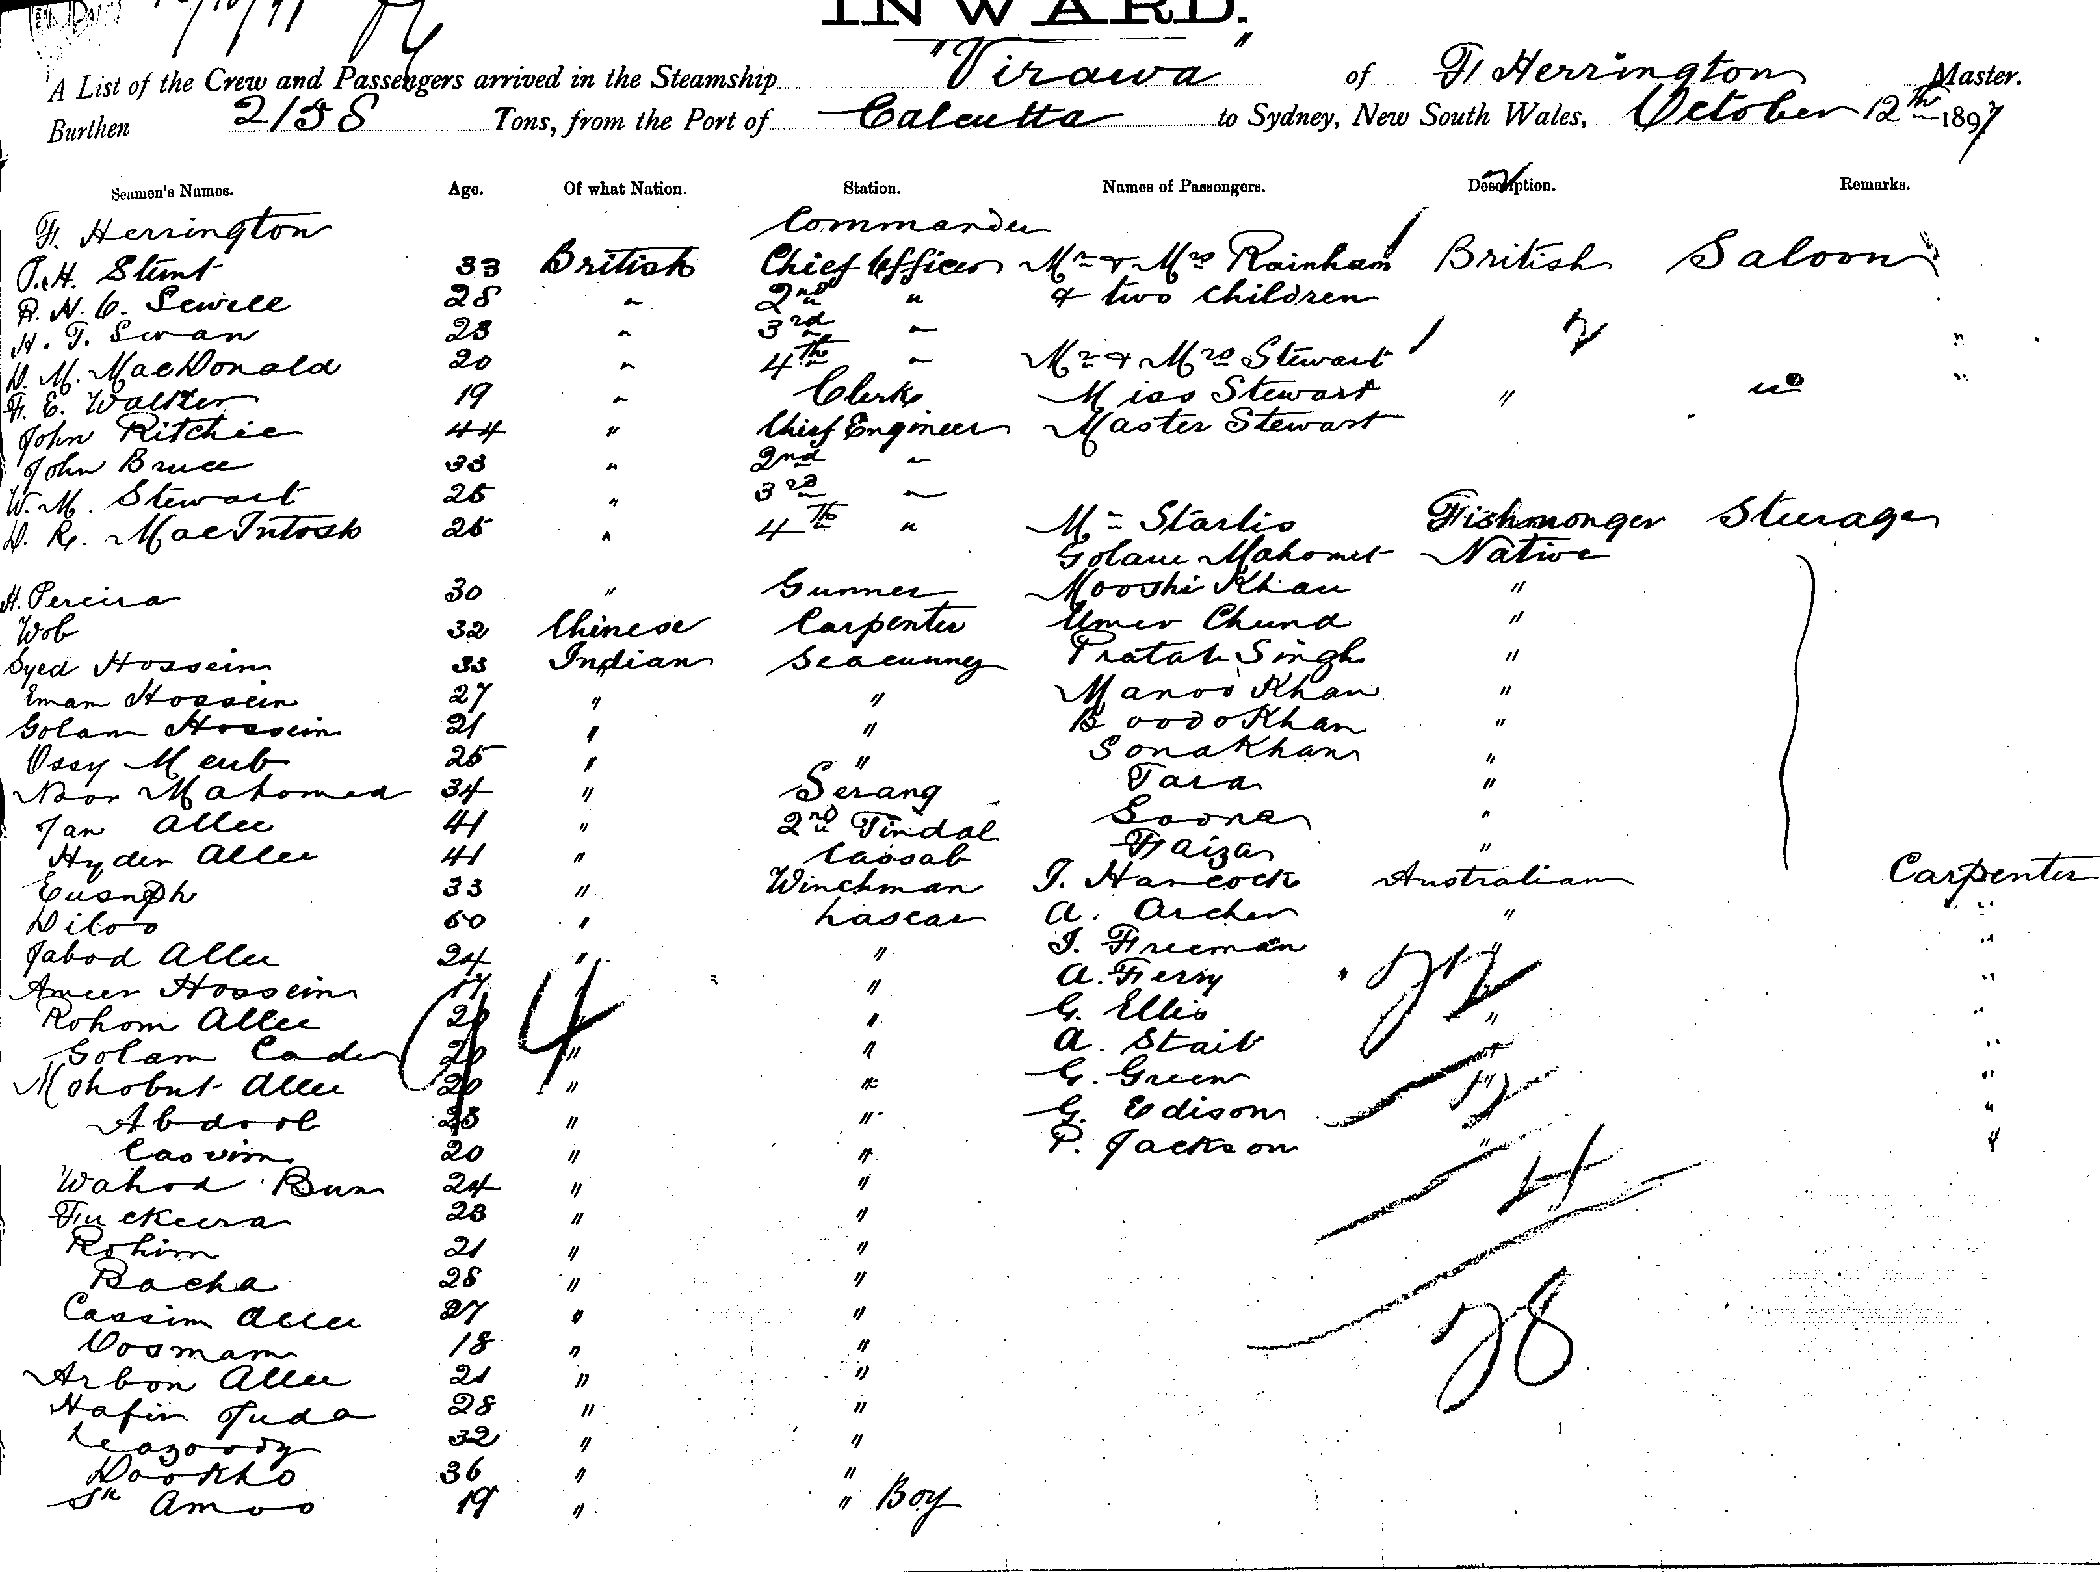 INWARD.
A List of the Crew and Passengers arrived in the Steamship "Virawa" of F. Herrington Master.
Burthen 2158 Tons, from the Port of Calcutta to Sydney, New South Wales, October 12th 1897
Seamen's Names. Age. Of what Nation. Station. Names of Passengers. Description. Remarks.
F. Herrington Commander
P. H. Stunt 33 British Chief Officer Mr & Mrs Rainham British Saloon
R. N. C. Sewell 28 " 2nd " & two children
H. T. Swan 23 " 3rd "
D. M. MacDonald 20 " 4th " Mr & Mrs Stewart "
F. E. Walker 19 " Clerk Miss Stewart " "
John Ritchie 44 " Chief Engineer Master Stewart
John Bruce 33 " 2nd "
W. M. Stewart 25 " 3rd "
D. R. MacIntosh 25 " 4th " Mr Startis Fishmonger Steerage
Golam Mahomet Native
H. Pereira 30 " Gunner Mooshi Khan "
Wob 32 Chinese Carpenter Umer Chund "
Syed Hossein 33 Indian Seacunny Pratab Singh "
Eman Hossein 27 " " Manoo Khan "
Golam Hossein 21 " " Boodo Khan "
Ossy Meub 25 " " Sona Khan "
Noor Mahomed 34 " Serang Tara "
Jan Allee 41 " 2nd Tindal Soona "
Hyder Allee 41 " Cassab Faiza "
Eusuph 33 " Winchman J. Hancock Australian Carpenter
Diloo 50 " Lascar A. Archer " "
Jabod Allee 24 " " J. Freeman " "
Ameer Hossein 17 " A. Ferry "
Rohom Allee 20 " " G. Ellis "
Golam Cader 20 " " A. Stait "
Mohobut Allee 20 " " G. Green " "
Abdool 23 " " G. Edison "
Cassim 20 " " P. Jackson " "
Wahod Bux 24 " "
Fuckeera 23 " "
Rohim 21 " "
Bacha 28 " "
Cassim Allee 27 " "
Oosman 18 " "
Arbon Allee 21 " "
Hafir Juda 28 " "
32 " "
Dookho 36 " "
Sk Amoo 19 " " Boy
94
72
2
4
78